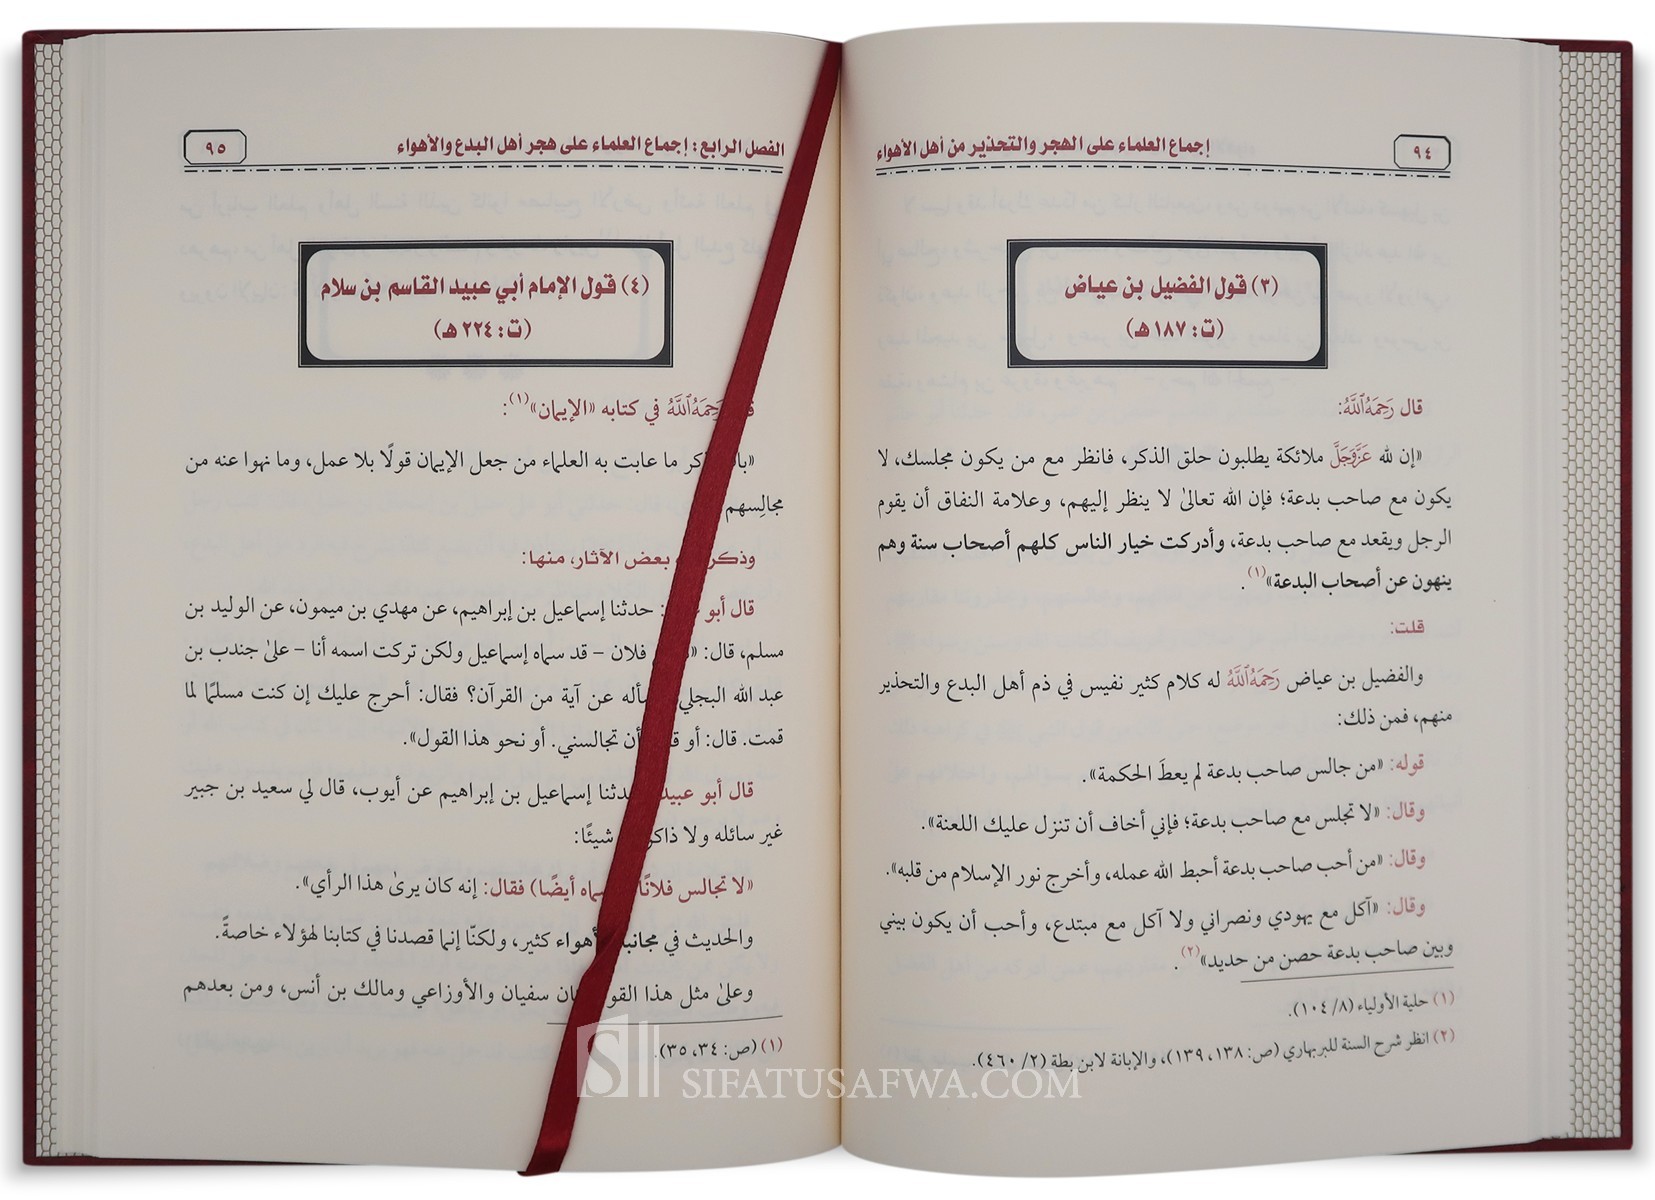 ٩٤
إجماع العلماء على الهجر والتحذير من أهل الأهواء
(٣) قول الفضيل بن عياض
(ت: ١٨٧ هـ)
قال رَحِمَهُ ٱللَّهُ:
«إن لله عَزَّوَجَلَّ ملائكة يطلبون حلق الذكر، فانظر مع من يكون مجلسك، لا
يكون مع صاحب بدعة؛ فإن الله تعالىٰ لا ينظر إليهم، وعلامة النفاق أن يقوم
الرجل ويقعد مع صاحب بدعة، وأدركت خيار الناس كلهم أصحاب سنة وهم
ينهون عن أصحاب البدعة»(١).
قلت:
والفضيل بن عياض رَحِمَهُ ٱللَّهُ له كلام كثير نفيس في ذم أهل البدع والتحذير
منهم، فمن ذلك:
قوله: «من جالس صاحب بدعة لم يعطَ الحكمة».
وقال: «لا تجلس مع صاحب بدعة؛ فإني أخاف أن تنزل عليك اللعنة».
وقال: «من أحب صاحب بدعة أحبط الله عمله، وأخرج نور الإسلام من قلبه».
وقال: «آكل مع يهودي ونصراني ولا آكل مع مبتدع، وأحب أن يكون بيني
وبين صاحب بدعة حصن من حديد»(٢).
(١) حلية الأولياء (٨/ ١٠٤).
(٢) انظر شرح السنة للبربهاري (ص: ١٣٨، ١٣٩)، والإبانة لابن بطة (٢/ ٤٦٠).
الفصل الرابع: إجماع العلماء على هجر أهل البدع والأهواء
٩٥
(٤) قول الإمام أبي عبيد القاسم بن سلام
(ت: ٢٢٤ هـ)
رَحِمَهُ ٱللَّهُ في كتابه «الإيمان»(١):
ما عابت به العلماء من جعل الإيمان قولًا بلا عمل، وما نهوا عنه من
مجالِسهم
وذكر بعض الآثار، منها:
قال أبو : حدثنا إسماعيل بن إبراهيم، عن مهدي بن ميمون، عن الوليد بن
مسلم، قال: فلان – قد سماه إسماعيل ولكن تركت اسمه أنا – علىٰ جندب بن
عبد الله البجلي عن آية من القرآن؟ فقال: أحرج عليك إن كنت مسلمًا لما
قمت. قال: أو أن تجالسني. أو نحو هذا القول».
قال أبو عبيد إسماعيل بن إبراهيم عن أيوب، قال لي سعيد بن جبير
غير سائله ولا شيئًا:
«لا تجالس فلانًا أيضًا) فقال: إنه كان يرىٰ هذا الرأي».
والحديث في كثير، ولكنّا إنما قصدنا في كتابنا لهؤلاء خاصةً.
وعلىٰ مثل هذا سفيان والأوزاعي ومالك بن أنس، ومن بعدهم
(١) (ص: ٣٤، ٣٥).
SIFATUSAFWA.COM